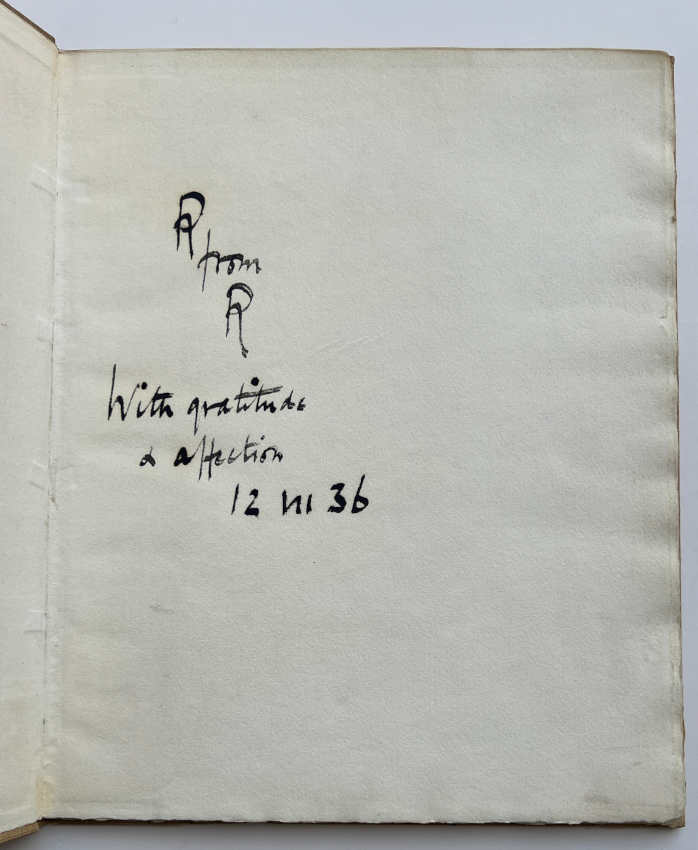 R
from
R
With gratitude
& affection
12 III 36